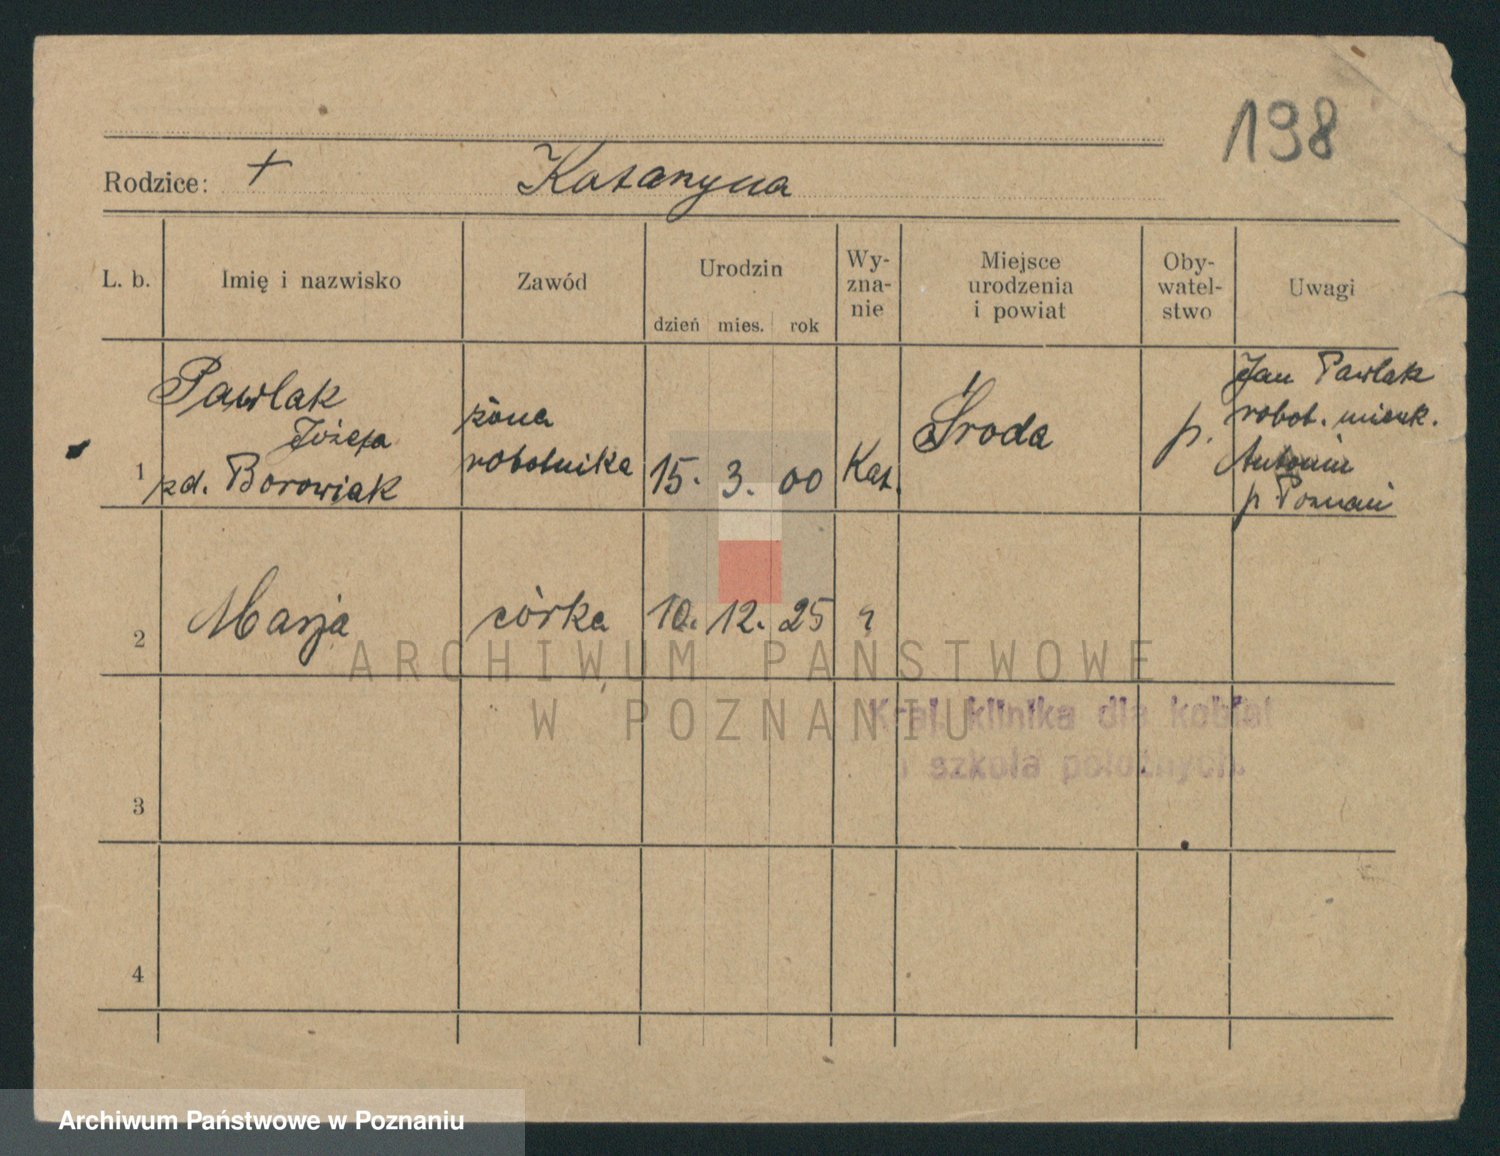 198
Rodzice: + Katarzyna
L. b.
Imię i nazwisko
Zawód
Urodzin
dzień mies. rok
Wy-
zna-
nie
Miejsce
urodzenia
i powiat
Oby-
watel-
stwo
Uwagi
1
Pawlak
Józefa
zd. Borowiak
żona
robotnika
15. 3. 00
Kat.
Środa
p.
Jan Pawlak
robot. mieszk.
Antonin
p. Poznań
2
Marja
córka
10. 12. 25
"
3
4
Kraj. klinika dla kobiet
i szkoła położnych.
ARCHIWUM PAŃSTWOWE
W POZNANIU
Archiwum Państwowe w Poznaniu